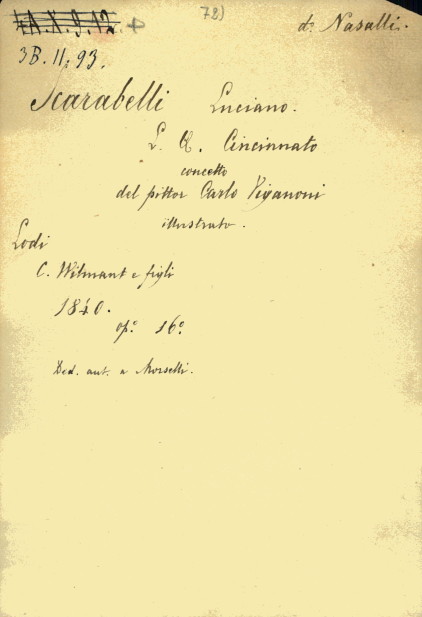 A.X.9.12. 78) d. Nasalli.
3B.II.93.
Scarabelli Luciano.
L. Q. Cincinnato
concetto
del pittor Carlo Viganoni
illustrato.
Lodi
C. Wilmant e figli
1840.
op.° 16°
Ded. aut. a Morselli.